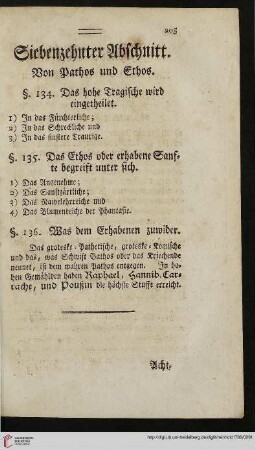 203
Siebenzehnter Abschnitt.
Von Pathos und Ethos.
§. 134. Das hohe Tragische wird
eingetheilet.
1) In das Fürchterliche;
2) In das Schreckliche und
3) In das finstere Traurige.
§. 135. Das Ethos oder erhabene Sanf-
te begreift unter sich.
1) Das Angenehme;
2) Das Sanftzärtliche;
3) Das Naivelehrreiche und
4) Das Blumenreiche der Phantasie.
§. 136. Was dem Erhabenen zuwider.
Das groteske-Pathetische, groteske-Komische
und das, was Schwift Bathos oder das Kriechende
nennet, ist dem wahren Pathos entgegen. In ho-
hen Gemählden haben Raphael, Hannib. Car-
rache, und Poußin die höchste Stuffe erreicht.
Acht,